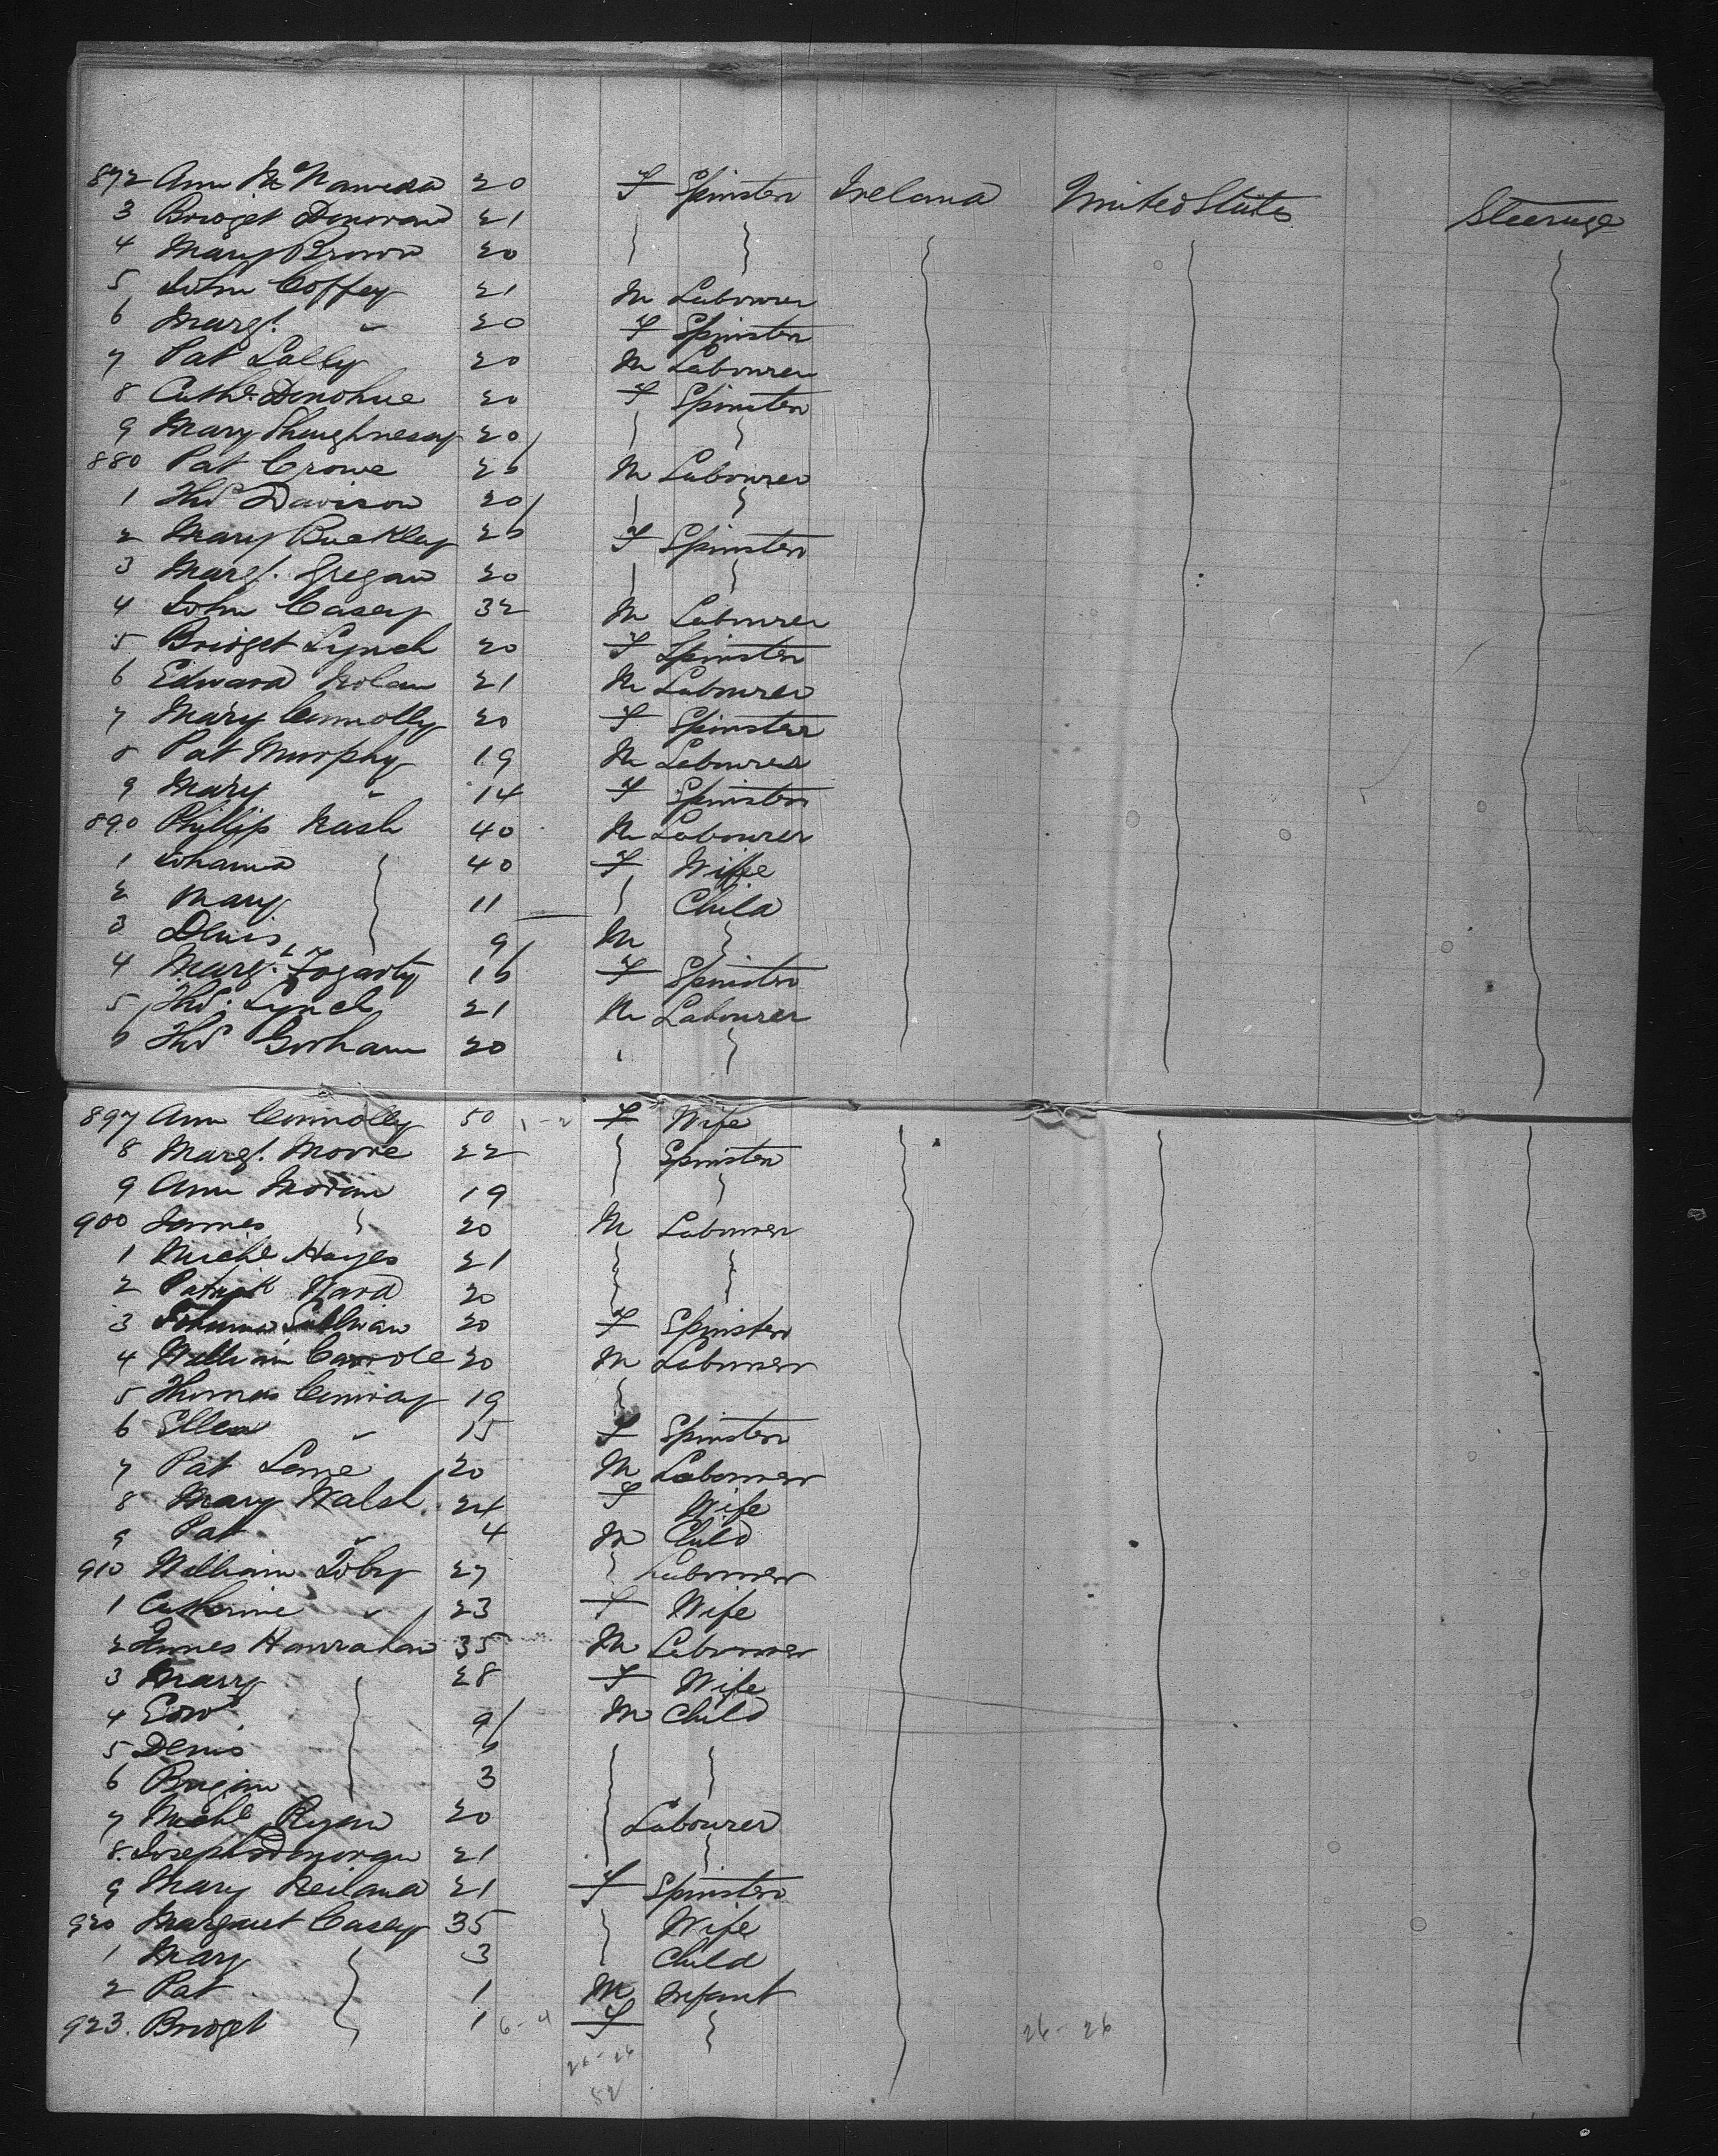 872 Ann McNamara 20 F Spinster Ireland United States Steerage
3 Bridget Donovan 21
4 Mary Brown 20
5 John Coffey 21 M Labourer
6 Margt. " 20 F Spinster
7 Pat Lally 20 M Labourer
8 Cathe Donohue 20 F Spinster
9 Mary Shaughnessy 20
880 Pat Crowe 26 M Labourer
1 Thos Davison 20
2 Mary Buckley 26 F Spinster
3 Margt. Gregan 20
4 John Casey 32 M Labourer
5 Bridget Lynch 20 F Spinster
6 Edward Nolan 21 M Labourer
7 Mary Connolly 20 F Spinster
8 Pat Murphy 19 M Labourer
9 Mary " 14 F Spinster
890 Phillip Nash 40 M Labourer
1 Johanna 40 F Wife
2 Mary 11 Child
3 Denis 9 M
4 Margt. Fogarty 16 F Spinster
5 Thos. Lynch 21 M Labourer
6 Thos Gorham 20
897 Ann Connolly 50 1-2 F Wife
8 Margt. Moore 22 Spinster
9 Ann Moran 19
900 James 20 M Labourer
1 Michl Hayes 21
2 Patrick Ward 20
3 Johanna Sullivan 20 F Spinster
4 William Carrole 20 M Labourer
5 Thomas Conway 19
6 Ellen " 15 F Spinster
7 Pat Lane 20 M Labourer
8 Mary Walsh 24 F Wife
9 Pat " 4 M Child
910 William Toby 27 Labourer
1 Catherine " 23 F Wife
2 James Hanrahan 35 M Labourer
3 Mary 28 F Wife
4 Edwd 9 M Child
5 Denis 6
6 3
7 Michl Ryan 20 Labourer
8 Joseph Donovan 21
9 Mary Neiland 21 F Spinster
920 Margaret Casey 35 Wife
1 Mary 3 Child
2 Pat 1 M Infant
923. Bridget 1 6-4 F 26-26
26-26
52